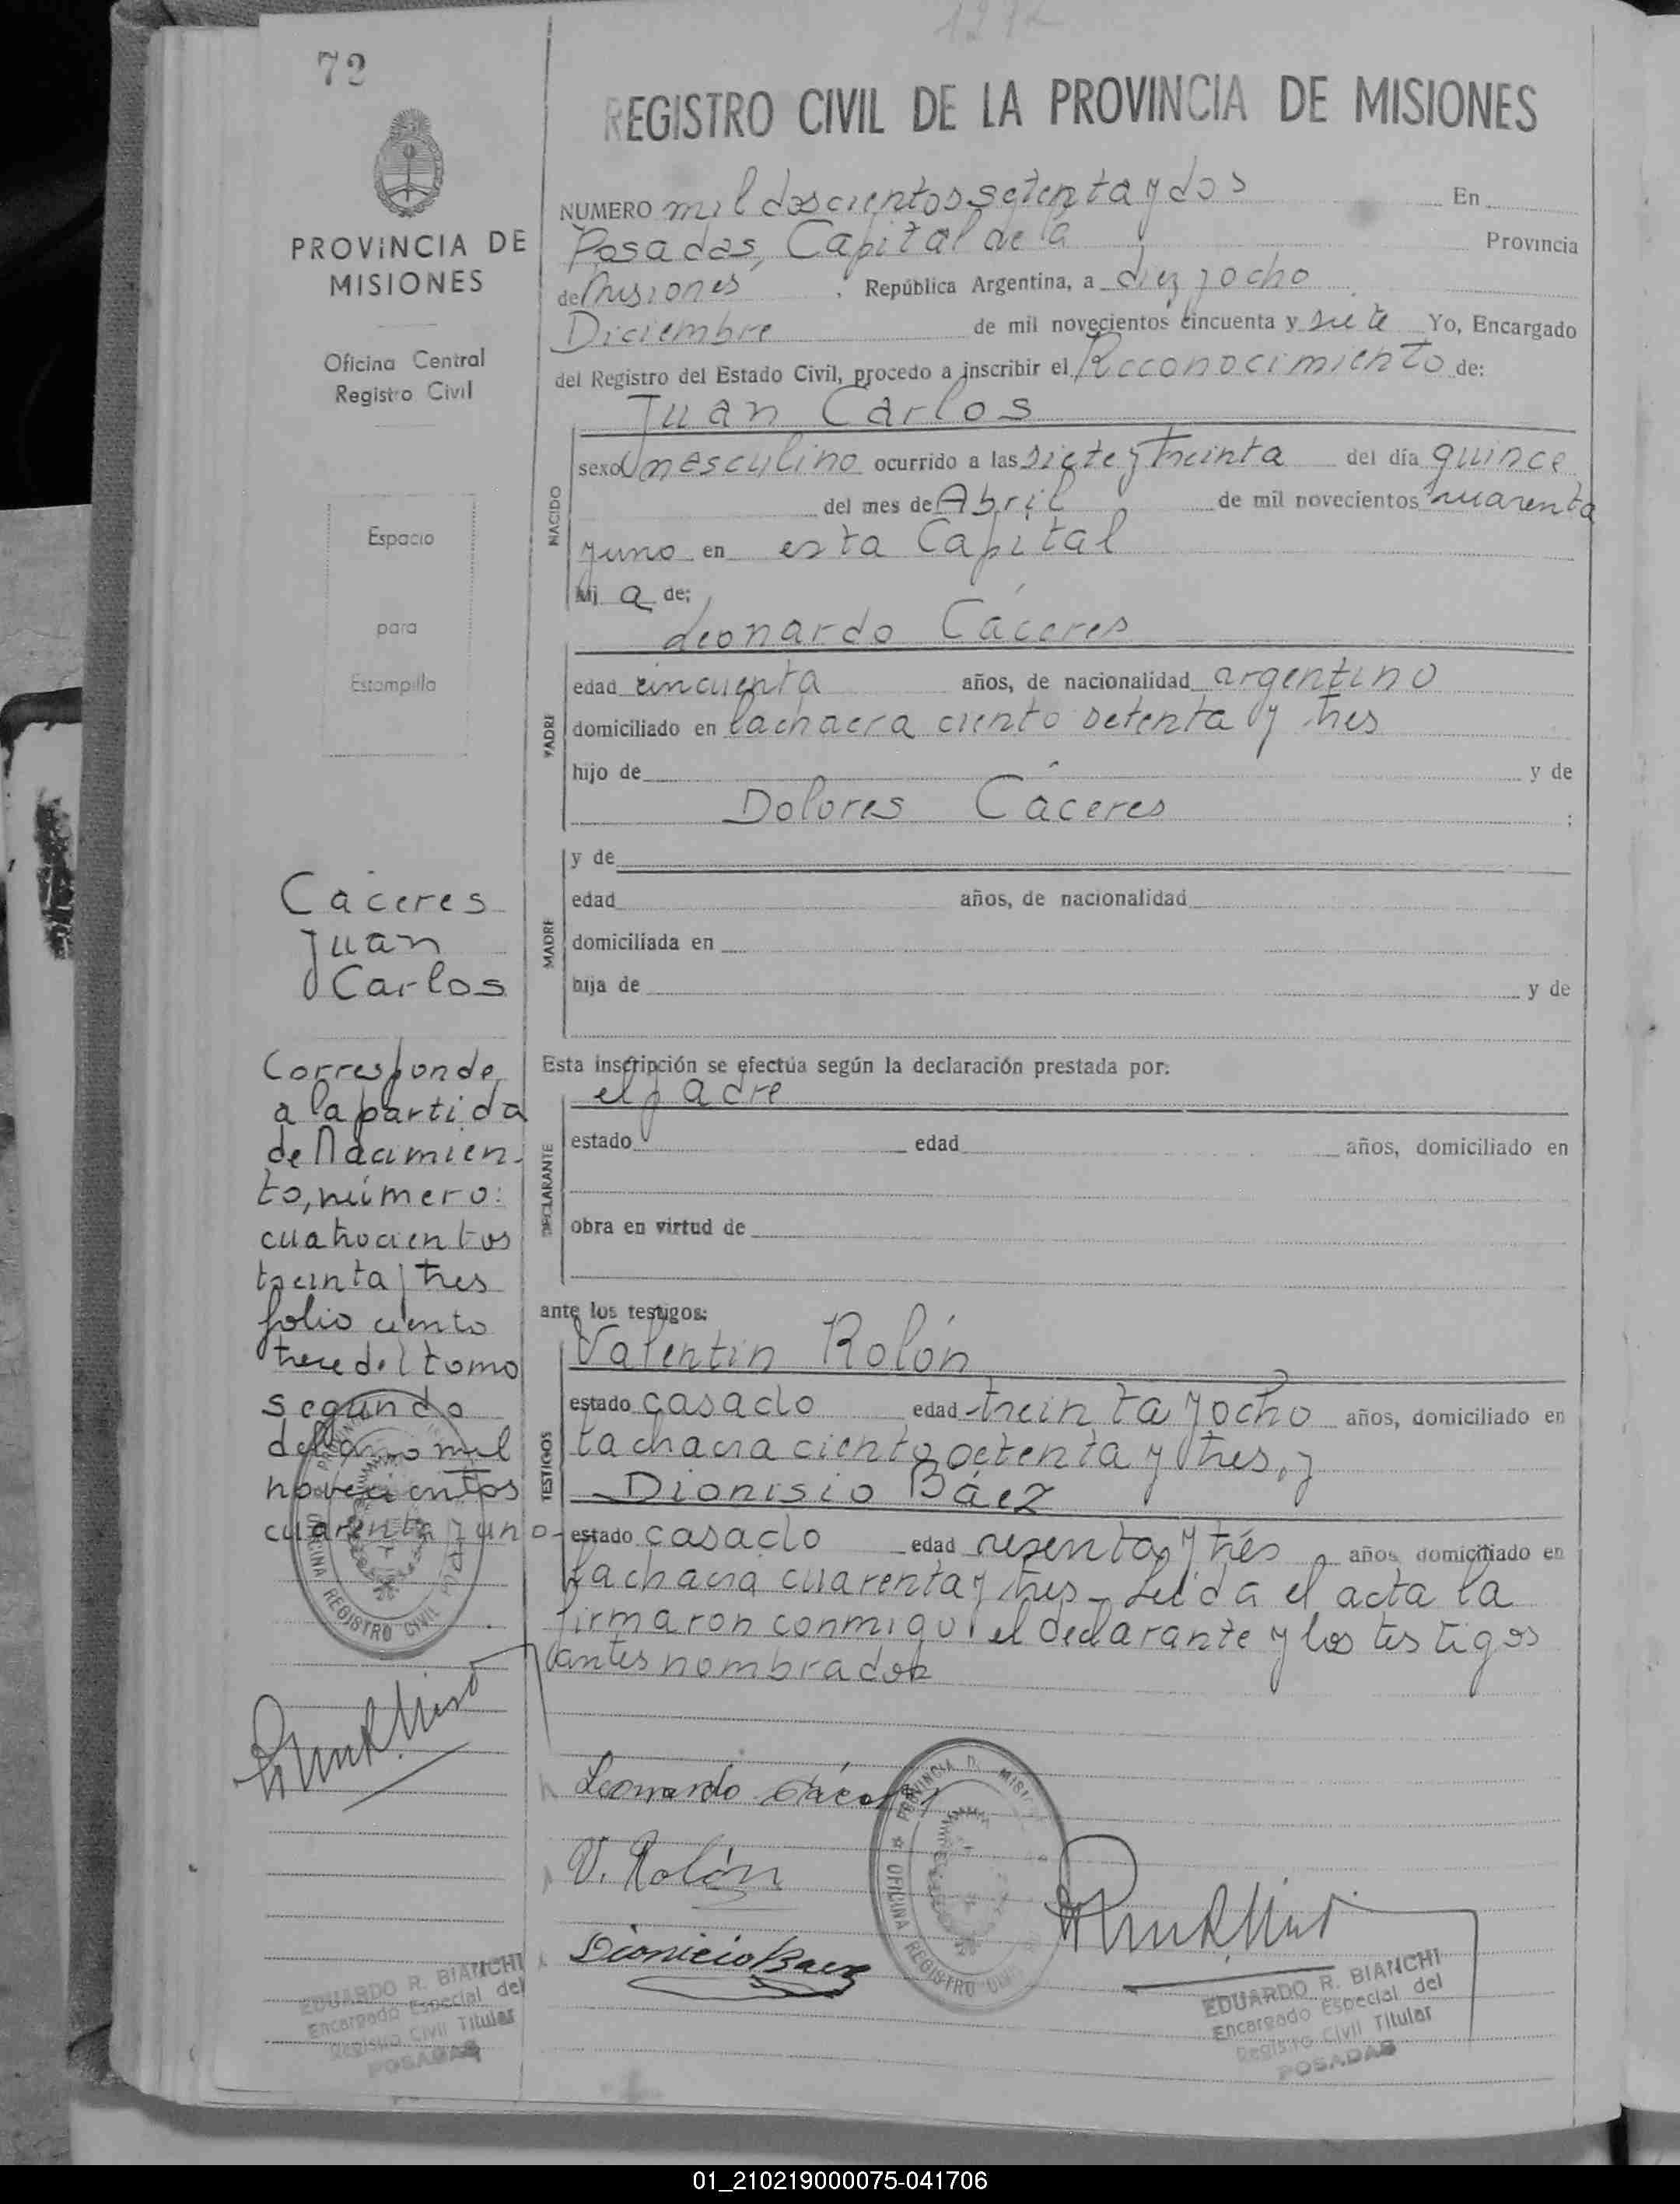 1272
72
REGISTRO CIVIL DE LA PROVINCIA DE MISIONES
PROVINCIA DE
MISIONES
Oficina Central
Registro Civil
Espacio
para
Estampilla
NUMERO mil doscientos setenta y dos En
Posadas, Capital de la Provincia
de Misiones, República Argentina, a diez y ocho
Diciembre de mil novecientos cincuenta y siete Yo, Encargado
del Registro del Estado Civil, procedo a inscribir el Reconocimiento de:
Juan Carlos
NACIDO
sexo Mesculino ocurrido a las siete y treinta del día quince
del mes de Abril de mil novecientos cuarenta
y uno en esta Capital
Hij a de:
Leonardo Cáceres
PADRE
edad cincuenta años, de nacionalidad argentino
domiciliado en la chacra ciento setenta y tres
hijo de y de
Dolores Cáceres ;
MADRE
y de
edad años, de nacionalidad
domiciliada en
hija de y de
Esta inscripción se efectúa según la declaración prestada por:
el padre
DECLARANTE
estado edad años, domiciliado en
obra en virtud de
ante los testigos:
TESTIGOS
Valentin Rolón
estado casado edad treinta y ocho años, domiciliado en
la chacra ciento setenta y tres, y
Dionisio Báez
estado casado edad sesenta y tres años domiciliado en
la chacra cuarenta y tres - Leída el acta la
firmaron conmigo el declarante y los testigos
antes nombrados
Cáceres
Juan
Carlos
Corresponde
a la partida
de Nacimien-
to, número:
cuatrocientos
treinta y tres
folio ciento
trece del tomo
segundo
del año mil
novecientos
cuarenta y uno-
PROVINCIA
OFICINA REGISTRO CIVIL
Leonardo Cáceres
V. Rolón
Dionicio Baez
PROVINCIA D. MISI
OFICINA REGISTRO CIVIL
EDUARDO R. BIANCHI
Encargado Especial del
Registro Civil Titular
POSADAS
EDUARDO R. BIANCHI
Encargado Especial del
Registro Civil Titular
POSADAS
01_210219000075-041706